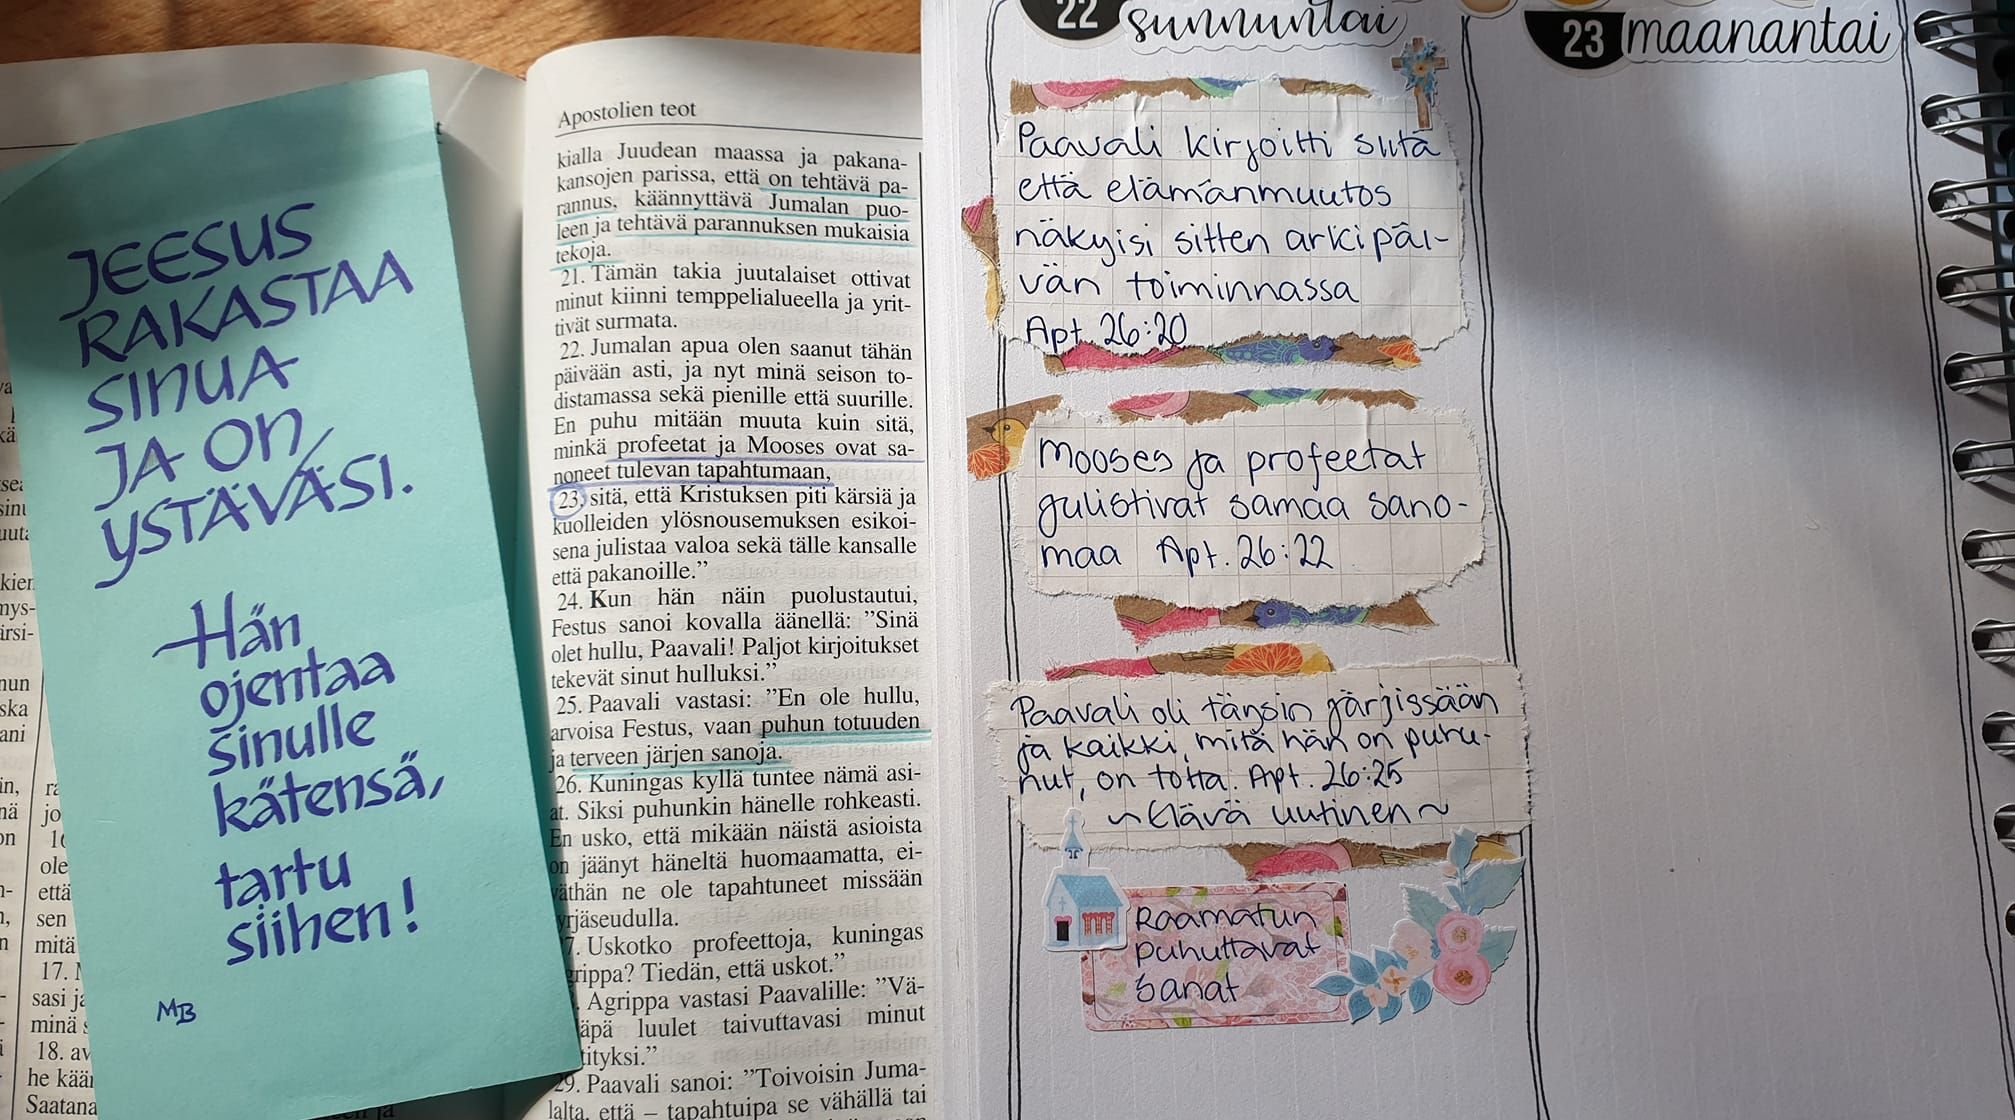 JEESUS
RAKASTAA
SINUA
JA ON
YSTÄVÄSI.
Hän
ojentaa
sinulle
kätensä,
tartu
siihen!
MB
Apostolien teot
kialla Juudean maassa ja pakana-
kansojen parissa, että on tehtävä pa-
rannus, käännyttävä Jumalan puo-
leen ja tehtävä parannuksen mukaisia
tekoja.
21. Tämän takia juutalaiset ottivat
minut kiinni temppelialueella ja yrit-
tivät surmata.
22. Jumalan apua olen saanut tähän
päivään asti, ja nyt minä seison to-
distamassa sekä pienille että suurille.
En puhu mitään muuta kuin sitä,
minkä profeetat ja Mooses ovat sa-
noneet tulevan tapahtumaan,
23. sitä, että Kristuksen piti kärsiä ja
kuolleiden ylösnousemuksen esikoi-
sena julistaa valoa sekä tälle kansalle
että pakanoille.”
24. Kun hän näin puolustautui,
Festus sanoi kovalla äänellä: ”Sinä
olet hullu, Paavali! Paljot kirjoitukset
tekevät sinut hulluksi.”
25. Paavali vastasi: ”En ole hullu,
arvoisa Festus, vaan puhun totuuden
ja terveen järjen sanoja.
26. Kuningas kyllä tuntee nämä asi-
at. Siksi puhunkin hänelle rohkeasti.
En usko, että mikään näistä asioista
on jäänyt häneltä huomaamatta, ei-
väthän ne ole tapahtuneet missään
yrjäseudulla.
7. Uskotko profeettoja, kuningas
grippa? Tiedän, että uskot.”
. Agrippa vastasi Paavalille: ”Vä-
äpä luulet taivuttavasi minut
tityksi.”
29. Paavali sanoi: ”Toivoisin Juma-
lalta, että – tapahtuipa se vähällä tai
17.
sasi
minä
18. av
he
Saatana
ole
että
sen
mitä
22 sunnuntai
Paavali kirjoitti siitä
että elämänmuutos
näkyisi sitten arkipäi-
vän toiminnassa
Apt. 26:20
Mooses ja profeetat
julistivat samaa sano-
maa Apt. 26:22
Paavali oli täysin järjissään
ja kaikki, mitä hän on puhu-
nut, on totta. Apt. 26:25
~Elävä uutinen~
Raamatun
puhuttavat
sanat
23 maanantai